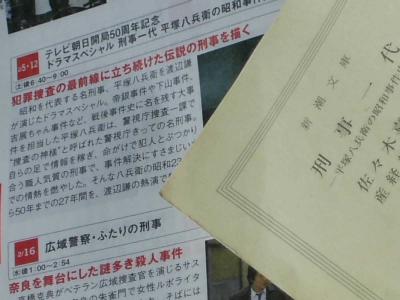 テレビ朝日開局50周年記念
ドラマスペシャル 刑事一代 平塚八兵衛の昭和事件
5・12
土後6:40～9:00
犯罪捜査の最前線に立ち続けた伝説の刑事を描く
昭和を代表する名刑事、平塚八兵衛を渡辺謙
が演じたドラマスペシャル。帝銀事件や下山事件、
吉展ちゃん事件など、戦後事件史に名を残す大事
件を担当した平塚八兵衛は、警視庁捜査一課で
“捜査の神様”と呼ばれた警視庁きっての名刑事。
自らの足で情報を稼ぎ、命がけで犯人とぶつかり
合う職人気質の刑事で、事件解決にすさまじい
での情熱を燃やした。そんな八兵衛の昭和22
ら50年までの27年間を、渡辺謙の熱演で
2/16
水後1:00～2:54
広域警察・ふたりの刑事
奈良を舞台にした謎多き殺人事件
高橋克典がベテラン広域捜査官を演じるサス
朱雀門で女性ルポライタ
新潮文庫
刑事一代
―平塚八兵衛の昭和事件
佐々木
産経